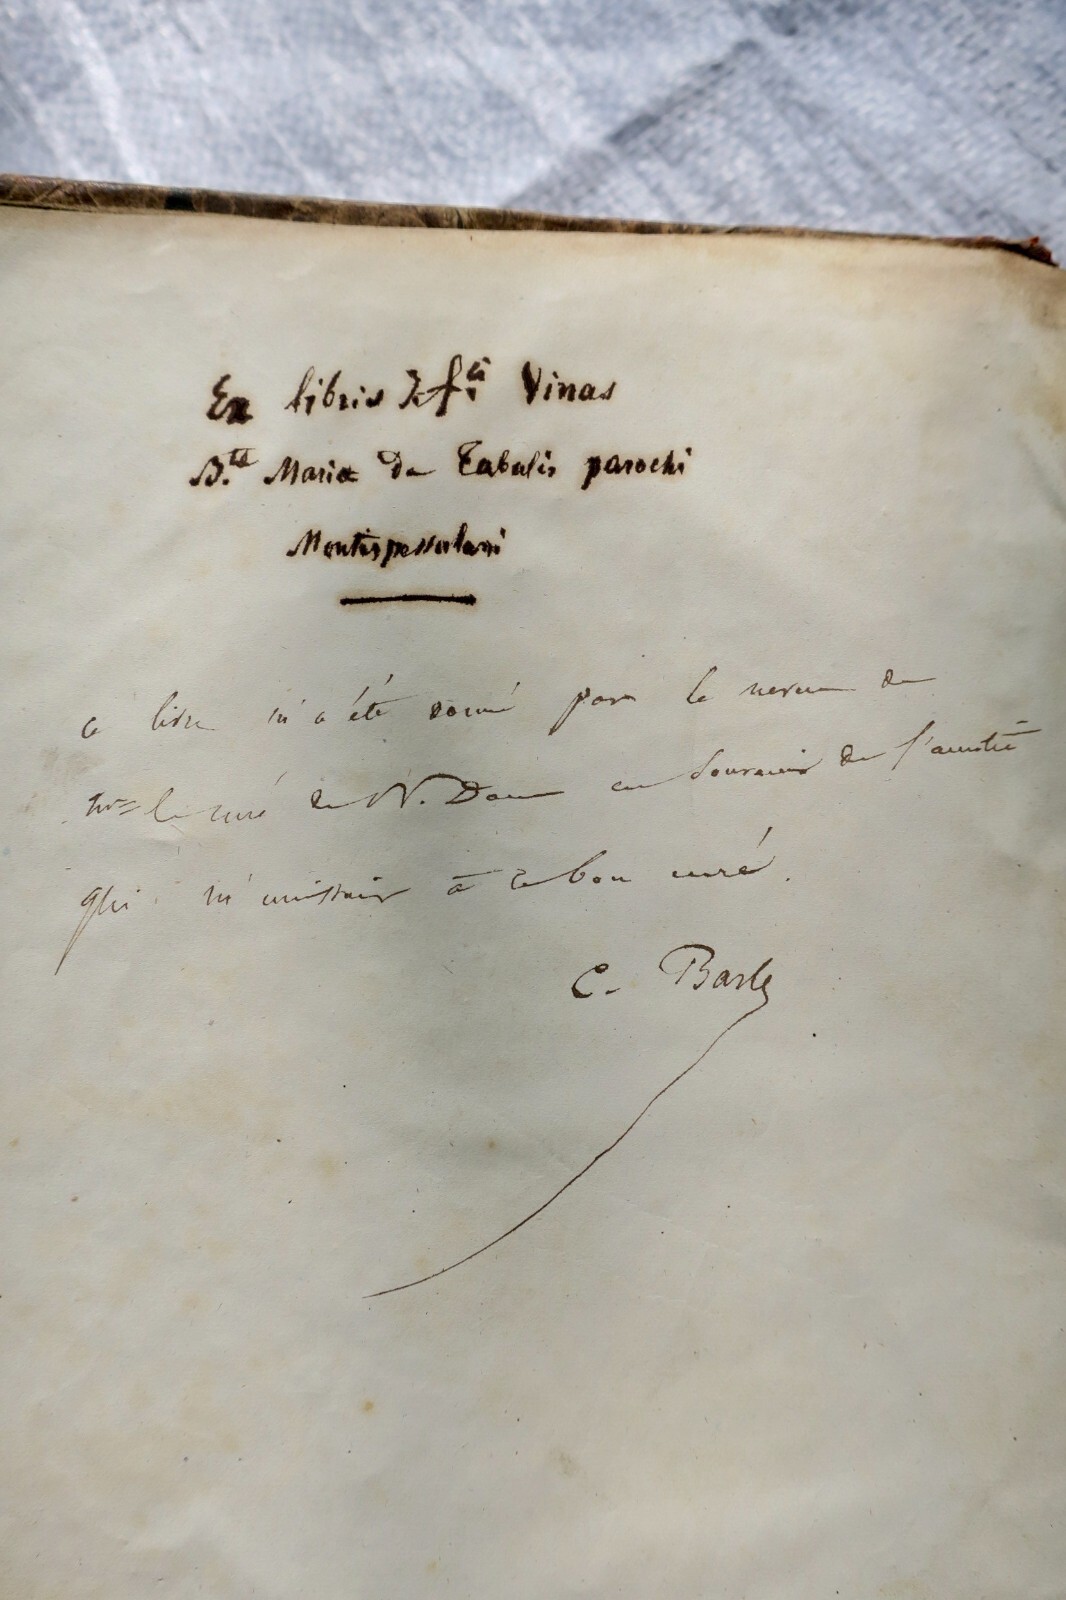 Ex libris Vinas
B.tæ Mariæ De Tabulis parochi
Montispessulani
ce livre m'a été donné par le neveu de
Mr le curé de N. Dame en souvenir de l'amitié
qui m'unissait à ce bon curé.
C. Barle